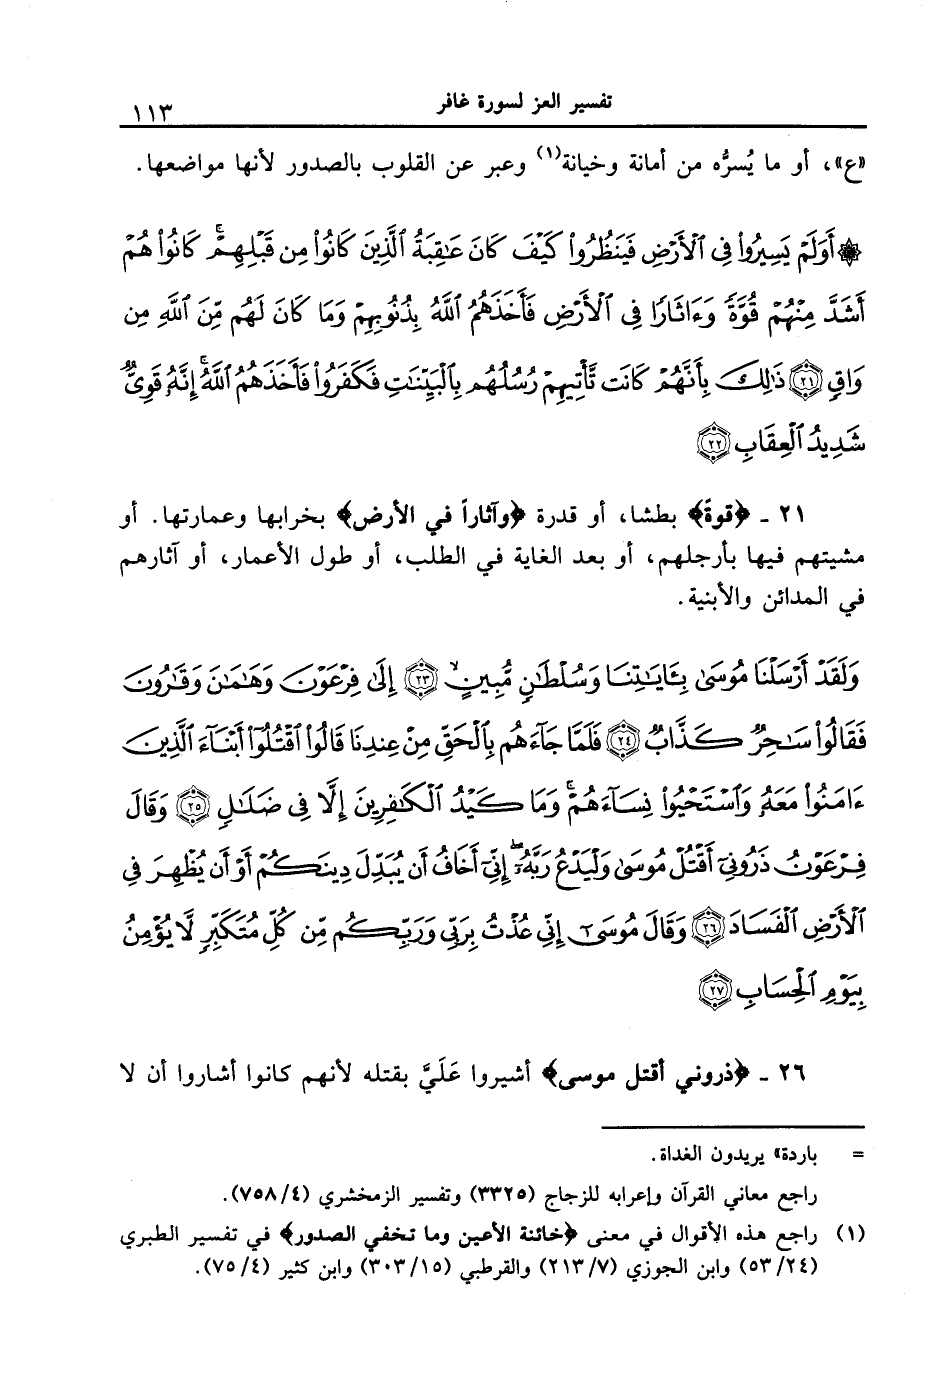 تفسير العز لسورة غافر ١١٣
«ع»، أو ما يُسرُّه من أمانة وخيانة(١) وعبر عن القلوب بالصدور لأنها مواضعها.
۞ أَوَلَمْ يَسِيرُوا۟ فِى ٱلْأَرْضِ فَيَنظُرُوا۟ كَيْفَ كَانَ عَٰقِبَةُ ٱلَّذِينَ كَانُوا۟ مِن قَبْلِهِمْ ۚ كَانُوا۟ هُمْ
أَشَدَّ مِنْهُمْ قُوَّةً وَءَاثَارًا فِى ٱلْأَرْضِ فَأَخَذَهُمُ ٱللَّهُ بِذُنُوبِهِمْ وَمَا كَانَ لَهُم مِّنَ ٱللَّهِ مِن
وَاقٍ ٢١ ذَٰلِكَ بِأَنَّهُمْ كَانَت تَّأْتِيهِمْ رُسُلُهُم بِٱلْبَيِّنَٰتِ فَكَفَرُوا۟ فَأَخَذَهُمُ ٱللَّهُ ۚ إِنَّهُۥ قَوِىٌّ
شَدِيدُ ٱلْعِقَابِ ٢٢
٢١ - ﴿قوةً﴾ بطشا، أو قدرة ﴿وآثاراً في الأرض﴾ بخرابها وعمارتها. أو
مشيتهم فيها بأرجلهم، أو بعد الغاية في الطلب، أو طول الأعمار، أو آثارهم
في المدائن والأبنية.
وَلَقَدْ أَرْسَلْنَا مُوسَىٰ بِـَٔايَٰتِنَا وَسُلْطَٰنٍ مُّبِينٍ ٢٣ إِلَىٰ فِرْعَوْنَ وَهَٰمَٰنَ وَقَٰرُونَ
فَقَالُوا۟ سَٰحِرٌ كَذَّابٌ ٢٤ فَلَمَّا جَآءَهُم بِٱلْحَقِّ مِنْ عِندِنَا قَالُوا۟ ٱقْتُلُوٓا۟ أَبْنَآءَ ٱلَّذِينَ
ءَامَنُوا۟ مَعَهُۥ وَٱسْتَحْيُوا۟ نِسَآءَهُمْ ۚ وَمَا كَيْدُ ٱلْكَٰفِرِينَ إِلَّا فِى ضَلَٰلٍ ٢٥ وَقَالَ
فِرْعَوْنُ ذَرُونِىٓ أَقْتُلْ مُوسَىٰ وَلْيَدْعُ رَبَّهُۥٓ ۖ إِنِّىٓ أَخَافُ أَن يُبَدِّلَ دِينَكُمْ أَوْ أَن يُظْهِرَ فِى
ٱلْأَرْضِ ٱلْفَسَادَ ٢٦ وَقَالَ مُوسَىٰٓ إِنِّى عُذْتُ بِرَبِّى وَرَبِّكُم مِّن كُلِّ مُتَكَبِّرٍ لَّا يُؤْمِنُ
بِيَوْمِ ٱلْحِسَابِ ٢٧
٢٦ - ﴿ذروني أقتل موسى﴾ أشيروا عَلَيَّ بقتله لأنهم كانوا أشاروا أن لا
= باردة» يريدون الغداة.
راجع معاني القرآن وإعرابه للزجاج (٣٣٢٥) وتفسير الزمخشري (٧٥٨/٤).
(١) راجع هذه الأقوال في معنى ﴿خائنة الأعين وما تخفي الصدور﴾ في تفسير الطبري
(٥٣/٢٤) وابن الجوزي (٢١٣/٧) والقرطبي (٣٠٣/١٥) وابن كثير (٧٥/٤).